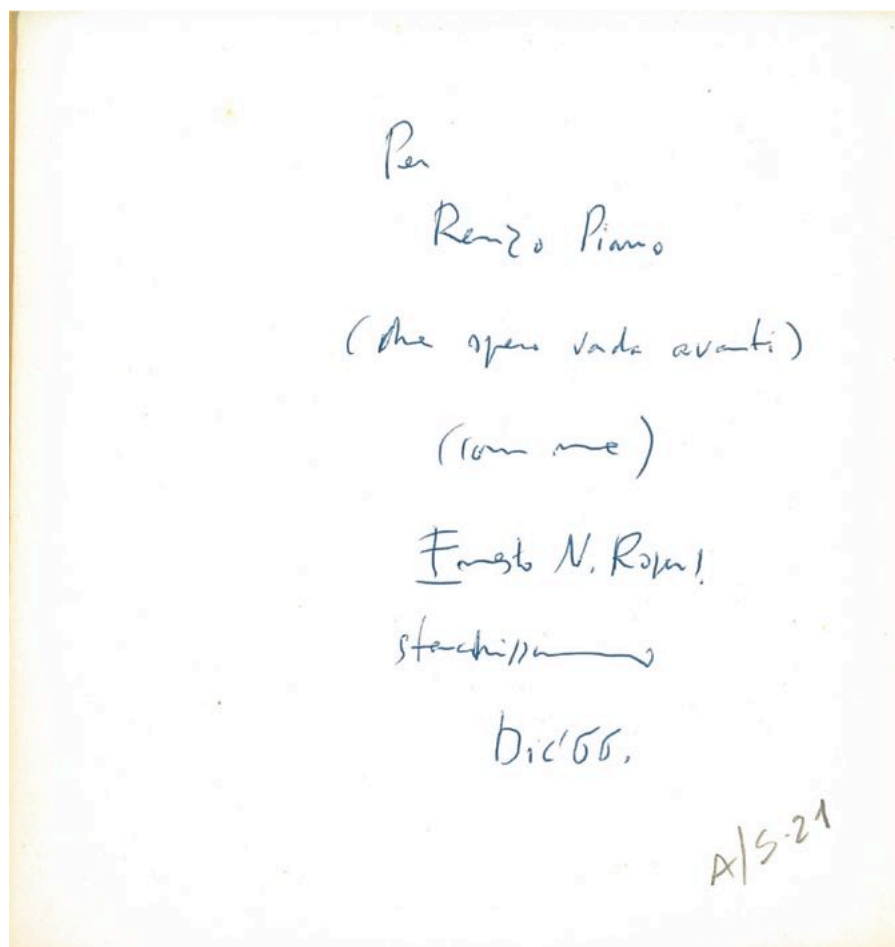 Per
Renzo Piano
(che spero vada avanti)
(con me)
Ernesto N. Rogers
stanchissimo
Dic'66.
A/S-21